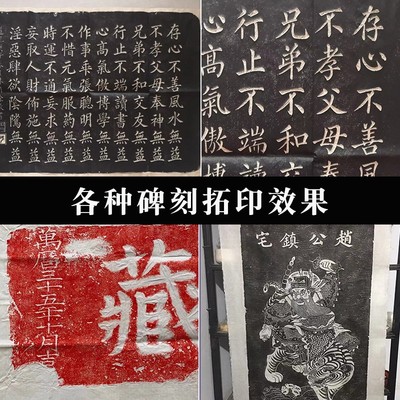 存心不善風水無益
不孝父母奉神無益
兄弟不和交友無益
行止不端讀書無益
心高氣傲博學無益
作事乖張聰明無益
不惜元氣服药無益
時運不通妄求無益
妄取人財佈施無益
淫惡肆欲陰騭無益
存心不善風
不孝父母奉
兄弟不和交
行止不端讀
心高氣傲博
各种碑刻拓印效果
藏
萬曆三十五年十月吉
趙公鎮宅